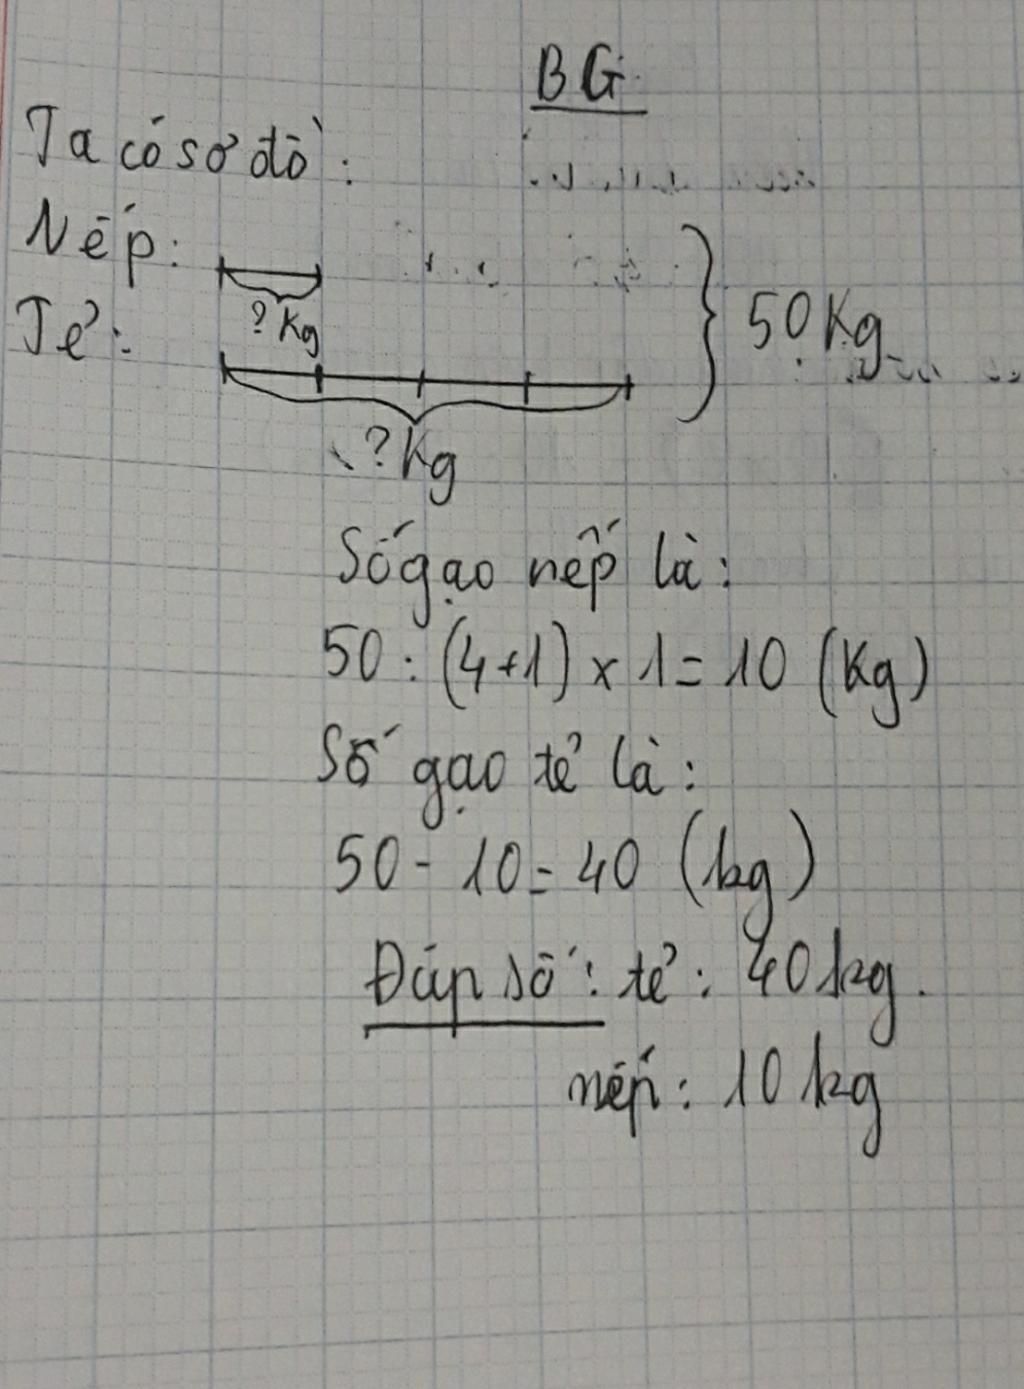 BG
Ta có sơ đồ:
Nếp:
? Kg
50 Kg
Tẻ:
? Kg
Số gạo nếp là:
50 : (4+1) x 1 = 10 (Kg)
Số gạo tẻ là:
50 - 10 = 40 (kg)
Đáp số: tẻ: 40 kg.
nếp: 10 kg